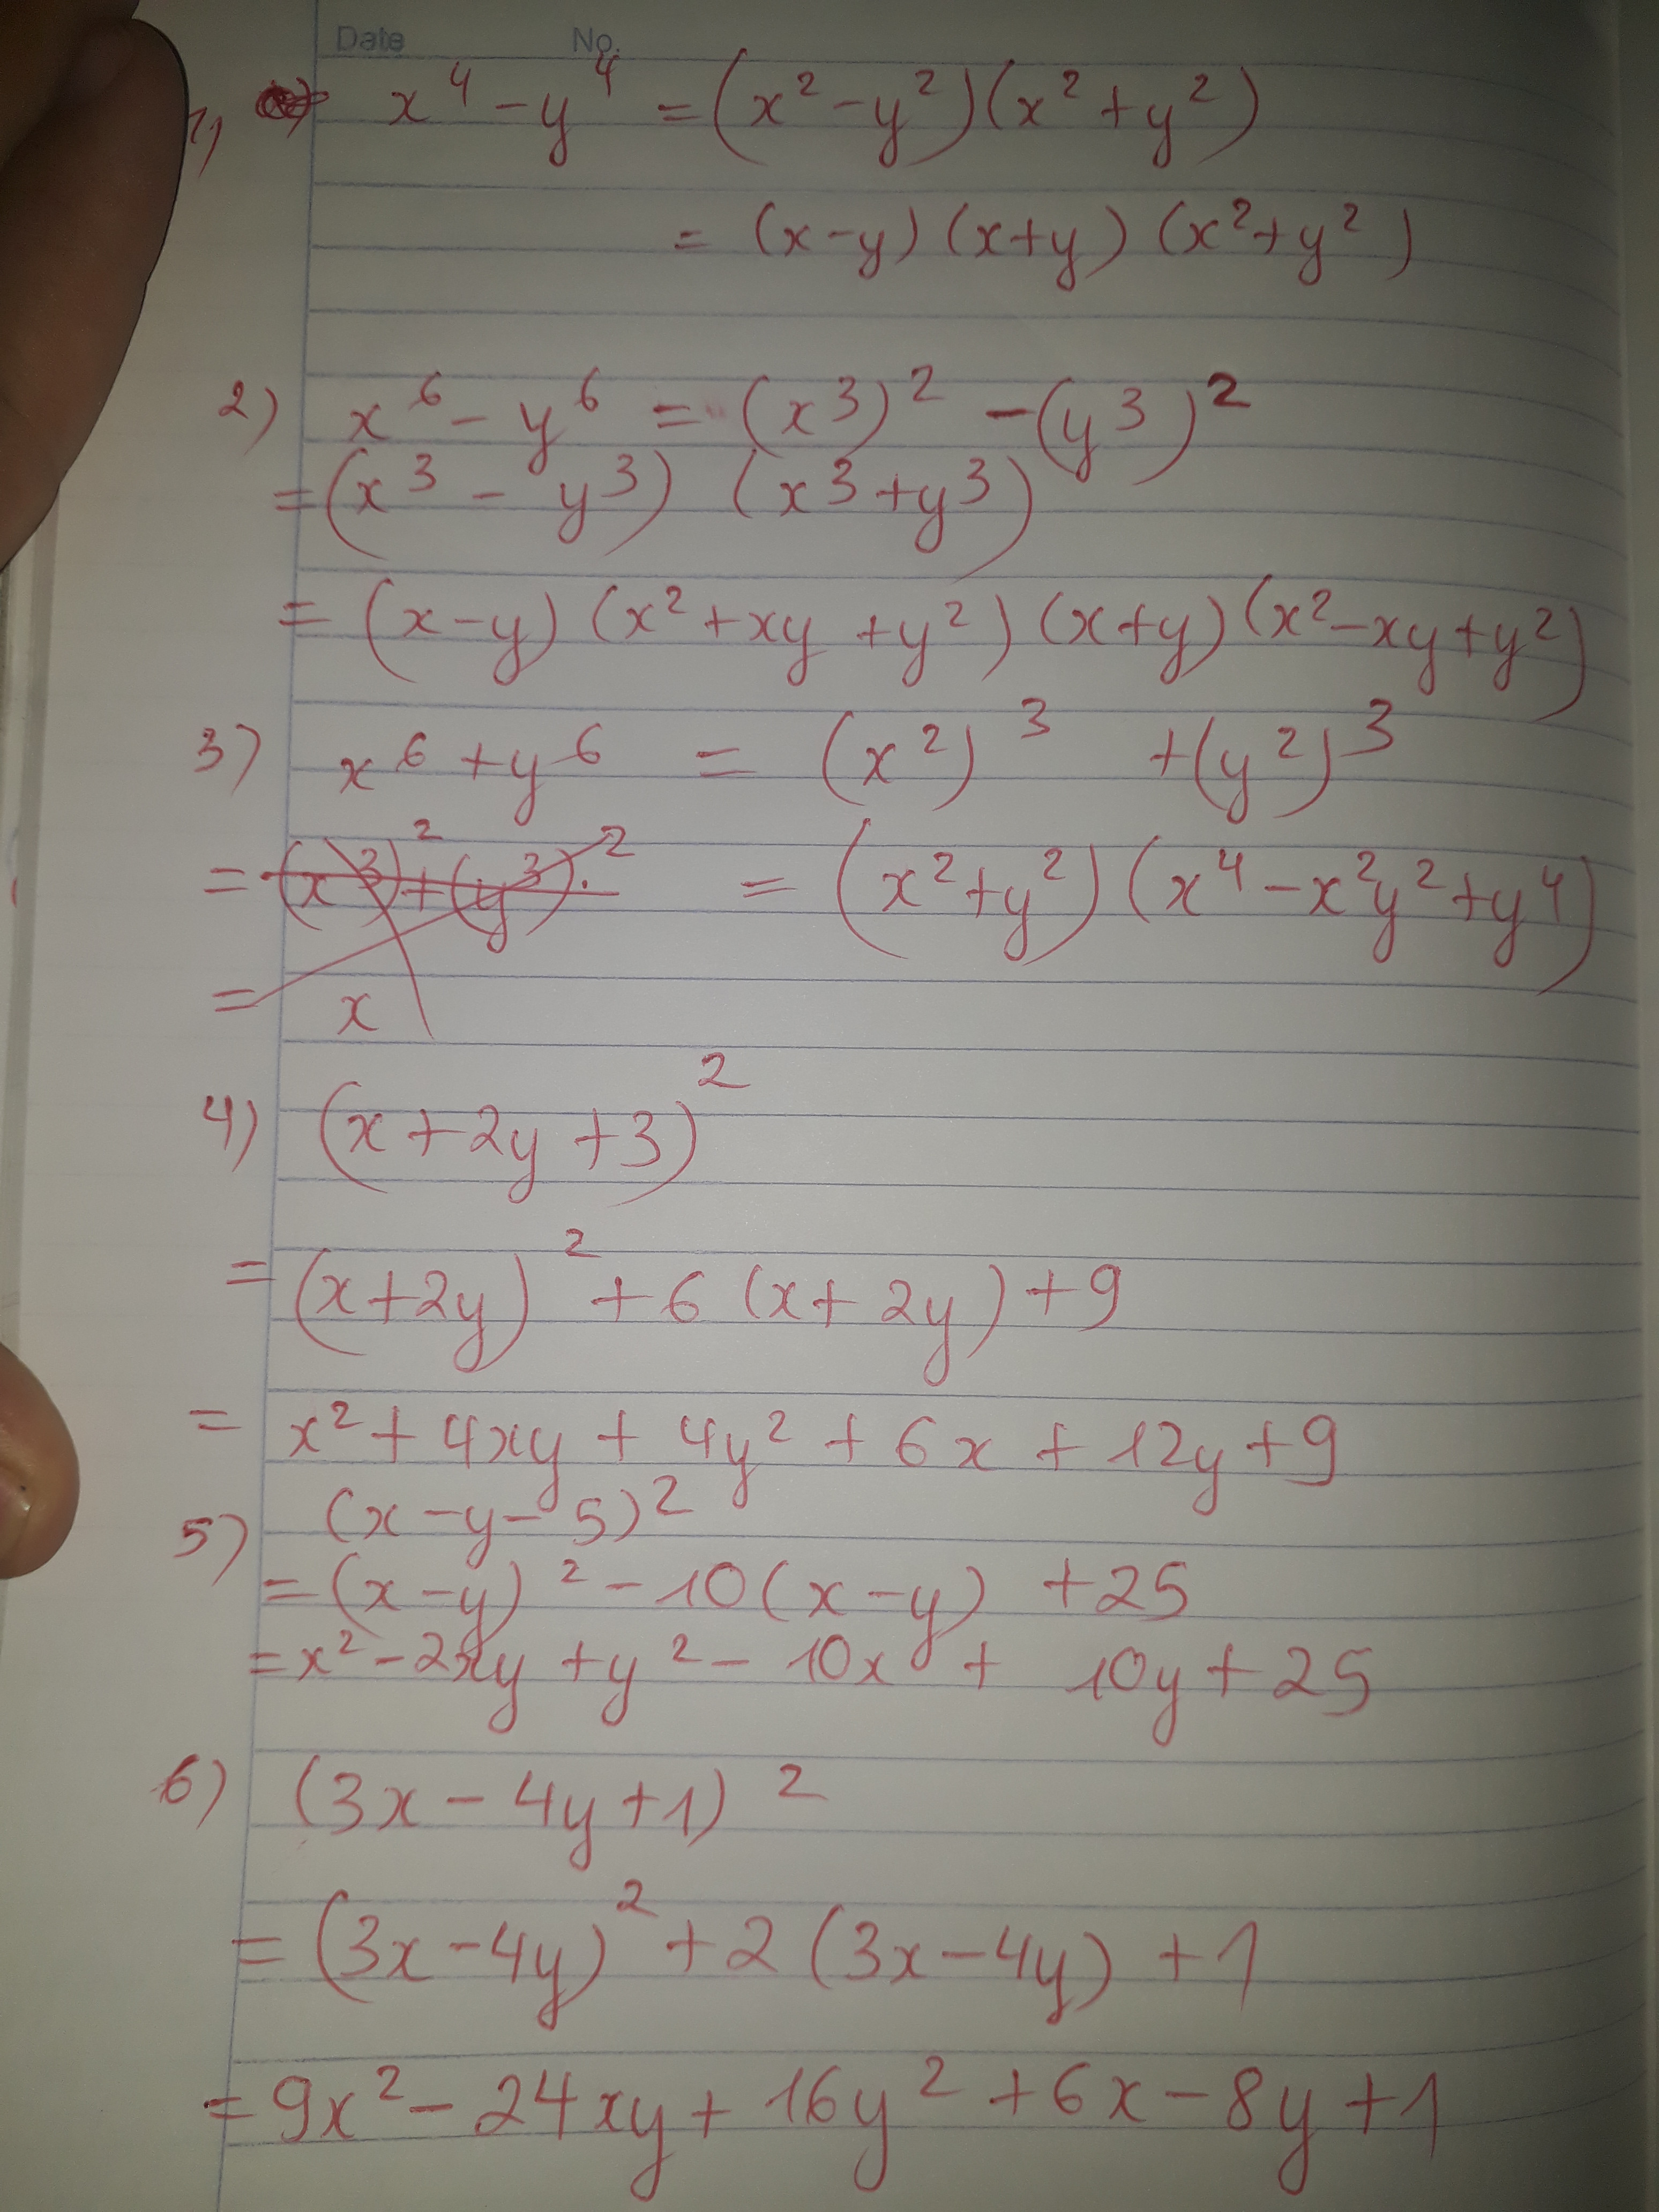 Date No.
1) x⁴ - y⁴ = (x² - y²)(x² + y²)
= (x-y) (x+y) (x²+y²)
2) x⁶ - y⁶ = (x³)² - (y³)²
= (x³ - y³) (x³ + y³)
= (x-y) (x² + xy + y²) (x+y) (x² - xy + y²)
3) x⁶ + y⁶ = (x²)³ + (y²)³
= (x³)² + (y³)² = (x² + y²) (x⁴ - x²y² + y⁴)
= x
4) (x + 2y + 3)²
= (x+2y)² + 6 (x + 2y) + 9
= x² + 4xy + 4y² + 6x + 12y + 9
5) (x - y - 5)²
= (x - y)² - 10(x - y) + 25
= x² - 2xy + y² - 10x + 10y + 25
6) (3x - 4y + 1)²
= (3x - 4y)² + 2 (3x - 4y) + 1
= 9x² - 24xy + 16y² + 6x - 8y + 1